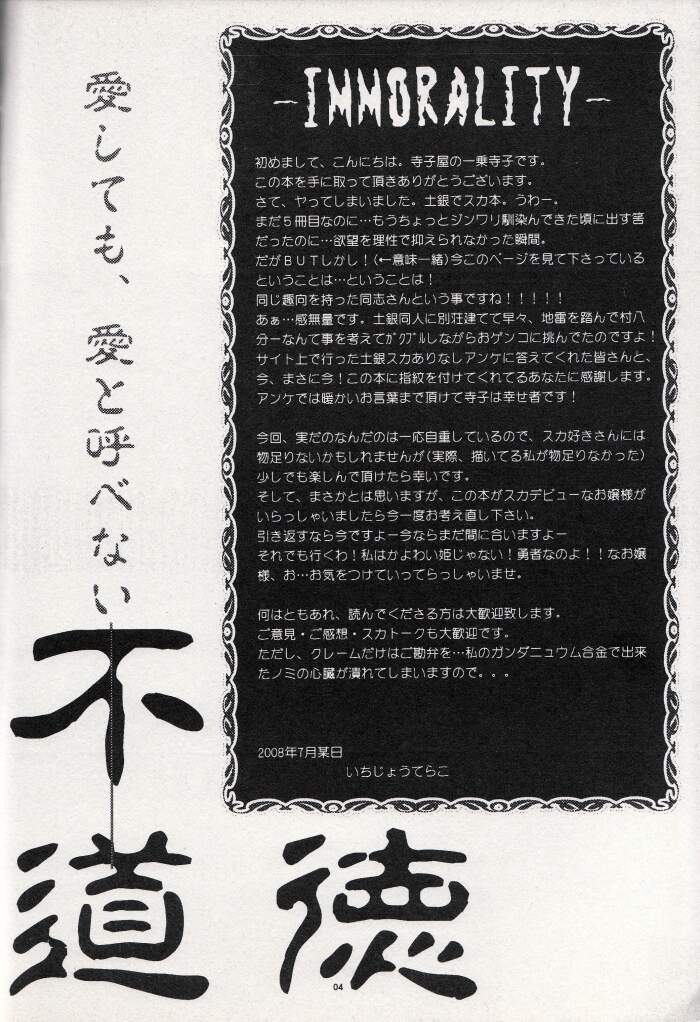 -IMMORALITY-
初めまして、こんにちは。寺子屋の一乗寺子です。
この本を手に取って頂きありがとうございます。
さて、ヤってしまいました。土銀でスカ本。うわー。
まだ５冊目なのに…もうちょっとジンワリ馴染んできた頃に出す筈
だったのに…欲望を理性で抑えられなかった瞬間。
だがＢＵＴしかし！（←意味一緒）今このページを見て下さっている
ということは…ということは！
同じ趣向を持った同志さんという事ですね！！！！！
あぁ…感無量です。土銀同人に別荘建てて早々、地雷を踏んで村八
分ーなんて事を考えてｶﾞｸﾌﾞﾙしながらおゲンコに挑んでたのですよ！
サイト上で行った土銀スカありなしアンケに答えてくれた皆さんと、
今、まさに今！この本に指紋を付けてくれてるあなたに感謝します。
アンケでは暖かいお言葉まで頂けて寺子は幸せ者です！
今回、実だのなんだのは一応自重しているので、スカ好きさんには
物足りないかもしれませんが（実際、描いてる私が物足りなかった）
少しでも楽しんで頂けたら幸いです。
そして、まさかとは思いますが、この本がスカデビューなお嬢様が
いらっしゃいましたら今一度お考え直し下さい。
引き返すなら今ですよー今ならまだ間に合いますよー
それでも行くわ！私はかよわい姫じゃない！勇者なのよ！！なお嬢
様、お…お気をつけていってらっしゃいませ。
何はともあれ、読んでくださる方は大歓迎致します。
ご意見・ご感想・スカトークも大歓迎です。
ただし、クレームだけはご勘弁を…私のガンダニュウム合金で出来
たノミの心臓が潰れてしまいますので。。。
2008年7月某日
いちじょうてらこ
愛しても、愛と呼べない
不道徳
04